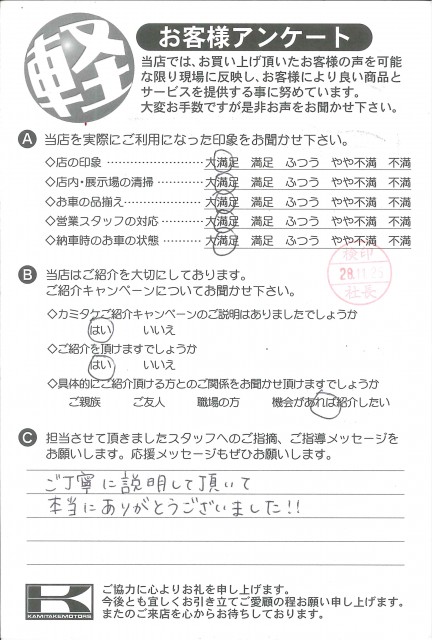 軽
お客様アンケート
当店では、お買い上げ頂いたお客様の声を可能
な限り現場に反映し、お客様により良い商品と
サービスを提供する事に努めています。
大変お手数ですが是非お声をお聞かせ下さい。
A 当店を実際にご利用になった印象をお聞かせ下さい。
◇店の印象 ………………… 大満足 満足 ふつう やや不満 不満
◇店内・展示場の清掃 ………… 大満足 満足 ふつう やや不満 不満
◇お車の品揃え……………… 大満足 満足 ふつう やや不満 不満
◇営業スタッフの対応 ………… 大満足 満足 ふつう やや不満 不満
◇納車時のお車の状態 ………… 大満足 満足 ふつう やや不満 不満
検印
28.11.
社長
B 当店はご紹介を大切にしております。
ご紹介キャンペーンについてお聞かせ下さい。
◇カミタケご紹介キャンペーンのご説明はありましたでしょうか
はい いいえ
◇ご紹介を頂けますでしょうか
はい いいえ
◇具体的にご紹介頂ける方とのご関係をお聞かせ頂けますでしょうか
ご親族 ご友人 職場の方 機会があれば紹介したい
C 担当させて頂きましたスタッフへのご指摘、ご指導メッセージを
お願いします。応援メッセージもぜひお願いします。
ご丁寧に説明して頂いて
本当にありがとうございました!!
K
KAMITAKEMOTORS
ご協力に心よりお礼を申し上げます。
今後とも宜しくお引き立てご愛顧の程お願い申し上げます。
またのご来店を心からお待ちしております。